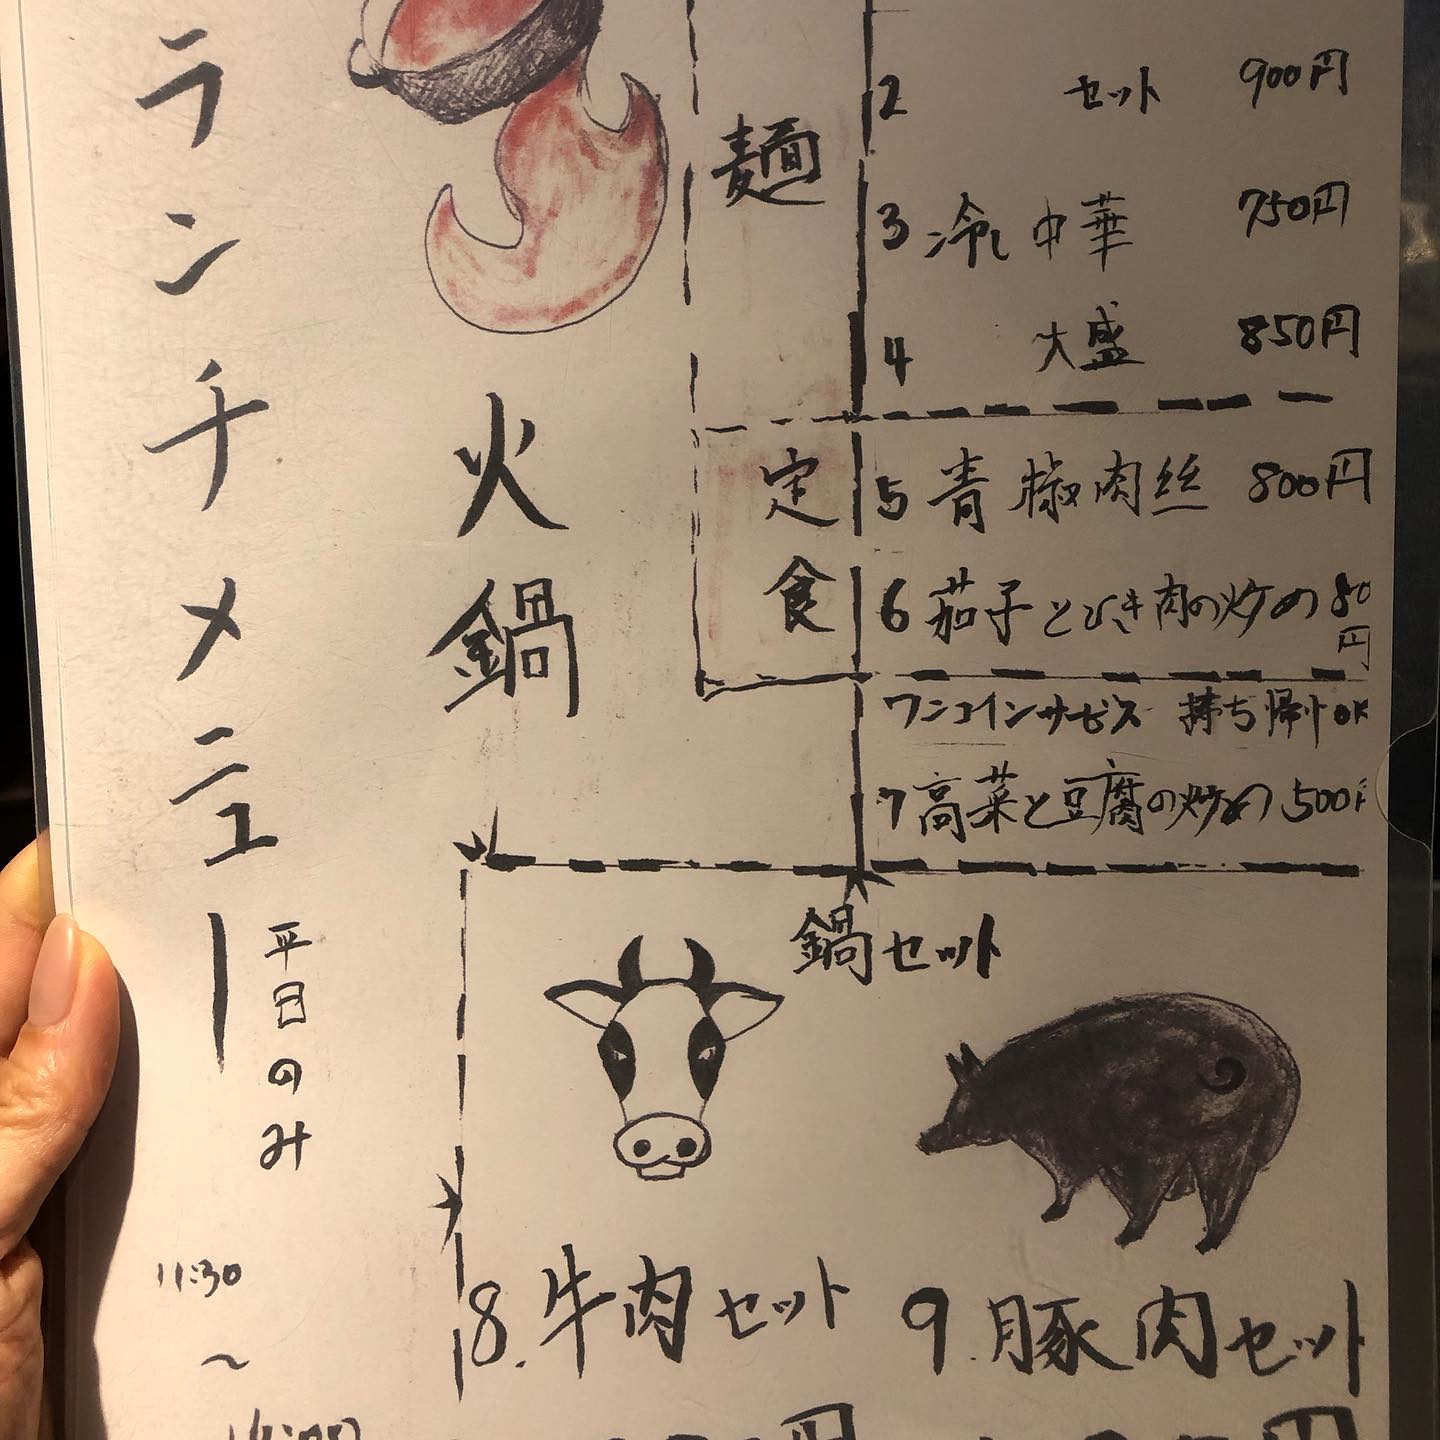 ランチメニュー
平日のみ
11:30
~
火鍋
麺
2 セット 900円
3 冷し中華 750円
4 大盛 850円
定食
5 青椒肉丝 800円
6 茄子とひき肉の炒め 80
円
ワンコインサービス 持ち帰りOK
7 高菜と豆腐の炒め 500円
鍋セット
8. 牛肉セット
9. 豚肉セット